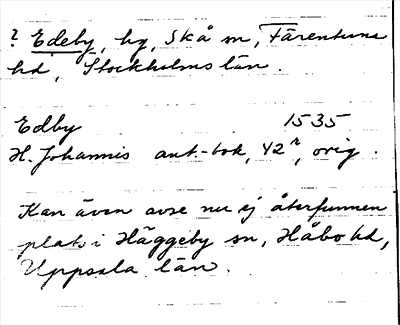 ? Edeby, by, Skå sn, Färentuna
hd, Stockholms län.
Edby 1535
H. Johannis ant.-bok, 42r, orig.
Kan även avse nu ej återfunnen
plats i Häggeby sn, Håbo hd,
Uppsala län.